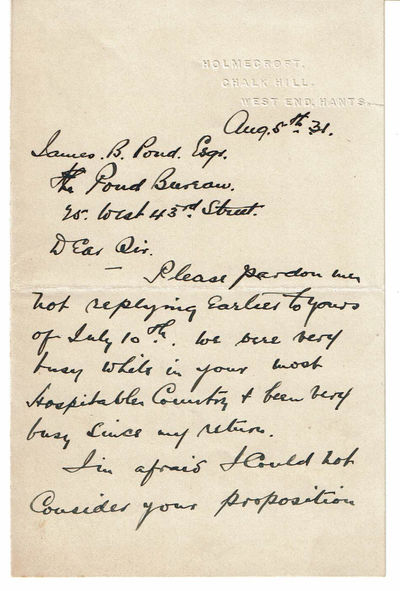 HOLMECROFT.
CHALK HILL.
WEST END, HANTS.
Aug. 5th 31.
James. B. Pond. Esqr.
The Pond Bureau.
25. West 43rd Street.
Dear Sir.
— Please pardon me
not replying Earlier to yours
of July 10th. We were very
busy while in your most
Hospitable Country & been very
busy Since my return.
I'm afraid I Could not
Consider your proposition